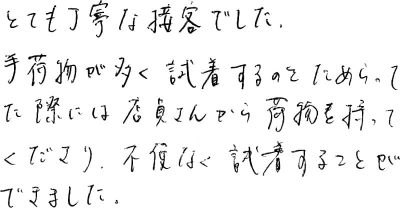 とても丁寧な接客でした。
手荷物が多く試着するのをためらって
た際には店員さんから荷物を持って
くださり、不便なく試着することが
できました。